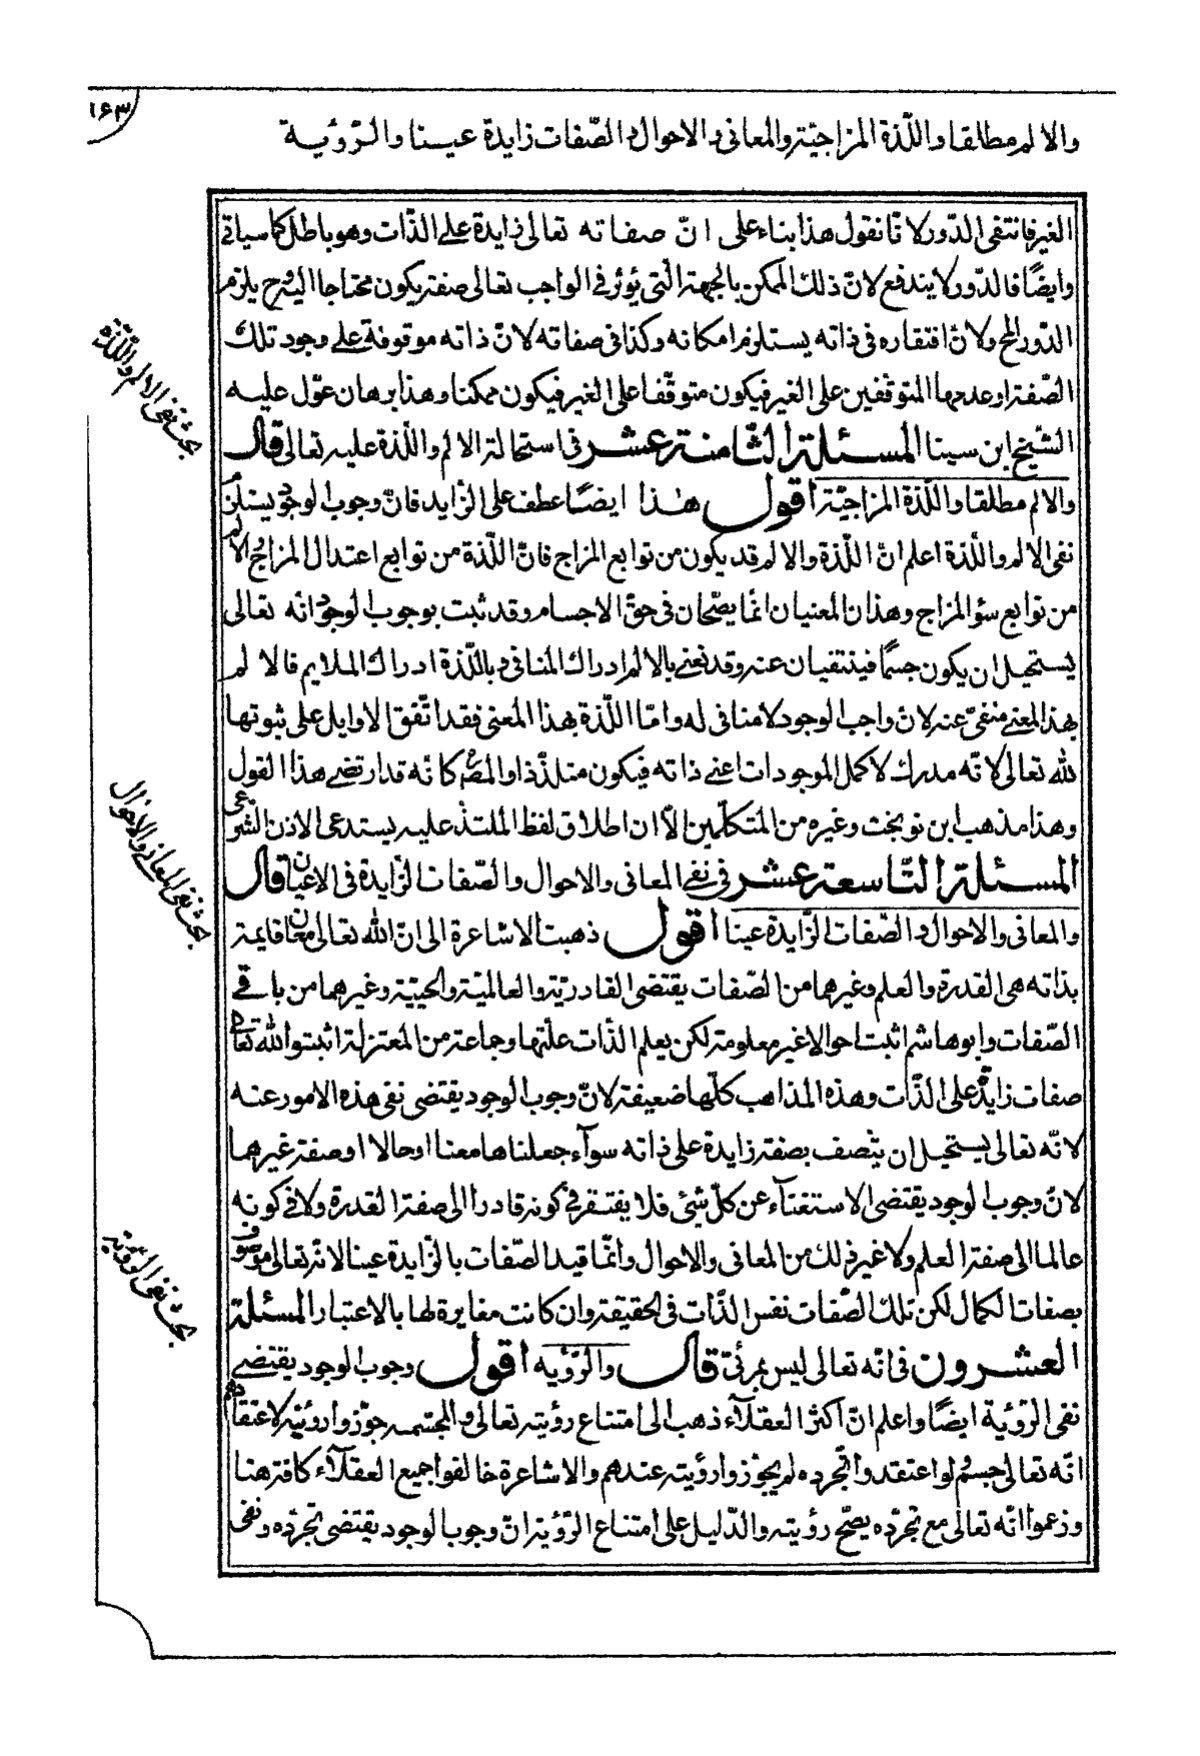 ١٦٣
والالم مطلقا واللّذة المزاجيّة والمعانى والاحوال والصّفات زايدة عينا والرّؤية
الغير فانتفى الدّور لانّا نقول هذا بناء على انّ صفاته تعالى زايدة على الذّات وهو باطل كما سياتى
وايضًا فالدّور لا يندفع لانّ ذلك الممكن بالجهة الّتى يؤثر فى الواجب تعالى صفة يكون محتاجا اليه وح يلزم
الدّور المح ولانّ افتقاره فى ذاته يستلزم امكانه وكذا فى صفاته لانّ ذاته موقوفة على وجود تلك
الصّفة او عدمها المتوقّفين على الغير فيكون متوقّفا على الغير فيكون ممكنا وهذا برهان عوّل عليه
الشّيخ ابن سينا المسئلة الثّامنة عشر فى استحالة الالم واللّذة عليه تعالى قال
والالم مطلقا واللّذة المزاجيّة اقول هذا ايضًا عطف على الزّايد فانّ وجوب الوجود يستلزم
نفى الالم واللّذة اعلم انّ اللّذة والالم قد يكون من توابع المزاج فانّ اللّذة من توابع اعتدال المزاج والالم
من توابع سؤ المزاج وهذان المعنيان انّما يصّحان فى حقّ الاجسام وقد ثبت بوجوب الوجود انّه تعالى
يستحيل ان يكون جسمًا فينتفيان عنه وقد نعنى بالالم ادراك المنافى وباللّذة ادراك الملايم فالالم
بهذا المعنى منفىّ عنه لانّ واجب الوجود لا منافى له وامّا اللّذة بهذا المعنى فقد اتّفق الاوايل على ثبوتها
لله تعالى لانّه مدرك لاكمل الموجودات اعنى ذاته فيكون متلذّذا والمصّ كانّه قد ارتضى هذا القول
وهذا مذهب ابن نوبخت وغيره من المتكلّمين الّا ان اطلاق لفظ الملتذّ عليه يستدعى الاذن الشّرعى
المسئلة التّاسعة عشر فى نفى المعانى والاحوال والصّفات الزّايدة فى الاعيان قال
والمعانى والاحوال والصّفات الزّايدة عينا اقول ذهبت الاشاعرة الى انّ الله تعالى معان قايمة
بذاته هى القدرة والعلم وغيرهما من الصّفات يقتضى القادريّة والعالميّة والحيّية وغيرهما من باقى
الصّفات وابو هاشم اثبت احوالا غير معلومة لكن يعلم الذّات علّتها وجماعة من المعتزلة اثبتوا لله تعالى
صفات زايدة على الذّات وهذه المذاهب كلّها ضعيفة لانّ وجوب الوجود يقتضى نفى هذه الامور عنه
لانّه تعالى يستحيل ان يتّصف بصفة زايدة على ذاته سوآء جعلناها معنا او حالا او صفة غيرهما
لانّ وجوب الوجود يقتضى الاستغنآء عن كلّ شئ فلا يفتقر فى كونه قادرا الى صفة القدرة ولا فى كونه
عالما الى صفة العلم ولا غير ذلك من المعانى والاحوال وانّما قيد الصّفات بالزّايدة عينا لانّه تعالى موصوف
بصفات الكمال لكن تلك الصّفات نفس الذّات فى الحقيقة وان كانت مغايرة لها بالاعتبار المسئلة
العشرون فى انّه تعالى ليس بمرئىّ قال والرّؤيه اقول وجوب الوجود يقتضى
نفى الرّؤية ايضًا واعلم انّ اكثر العقلآء ذهب الى امتناع رؤيته تعالى والمجسّمه جوّزوا رؤيته لاعتقادهم
انّه تعالى جسم ولو اعتقدوا تجرّده لم يجوّزوا رؤيته عندهم والاشاعرة خالفوا جميع العقلآء كافة هنا
وزعموا انّه تعالى مع تجرّده يصحّ رؤيته والدّليل على امتناع الرّؤية انّ وجوب الوجود يقتضى تجرّده ونفى
بحث نفى الالم واللّذة
بحث نفى المعانى والاحوال
بحث نفى الرّؤية